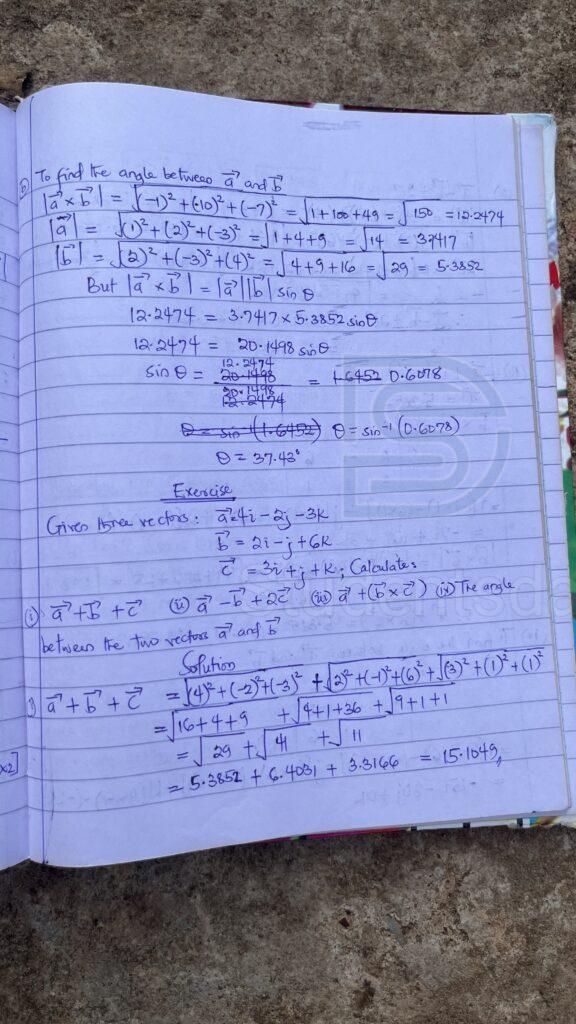 b) To find the angle between a⃗ and b⃗
|a⃗ × b⃗| = √(-1)² + (-10)² + (-7)² = √1 + 100 + 49 = √150 = 12.2474
|a⃗| = √(1)² + (2)² + (-3)² = √1 + 4 + 9 = √14 = 3.7417
|b⃗| = √(2)² + (-3)² + (4)² = √4 + 9 + 16 = √29 = 5.3852
But |a⃗ × b⃗| = |a⃗||b⃗| sin θ
12.2474 = 3.7417 × 5.3852 sin θ
12.2474 = 20.1498 sin θ
12.2474
sin θ = 20.1498 = 1.6452 0.6078
20.1498
12.2474
θ = sin⁻¹(1.6452) θ = sin⁻¹(0.6078)
θ = 37.43°
Exercise
Given three vectors: a⃗ = 4i - 2j - 3k
b⃗ = 2i - j + 6k
c⃗ = 3i + j + k; Calculate:
(i) a⃗ + b⃗ + c⃗ (ii) a⃗ - b⃗ + 2c⃗ (iii) a⃗ + (b⃗ × c⃗) (iv) The angle
between the two vectors a⃗ and b⃗
Solution
a⃗ + b⃗ + c⃗ = √(4)² + (-2)² + (-3)² + √2² + (-1)² + (6)² + √(3)² + (1)² + (1)²
= √16 + 4 + 9 + √4 + 1 + 36 + √9 + 1 + 1
= √29 + √41 + √11
= 5.3852 + 6.4031 + 3.3166 = 15.1049,
×2]